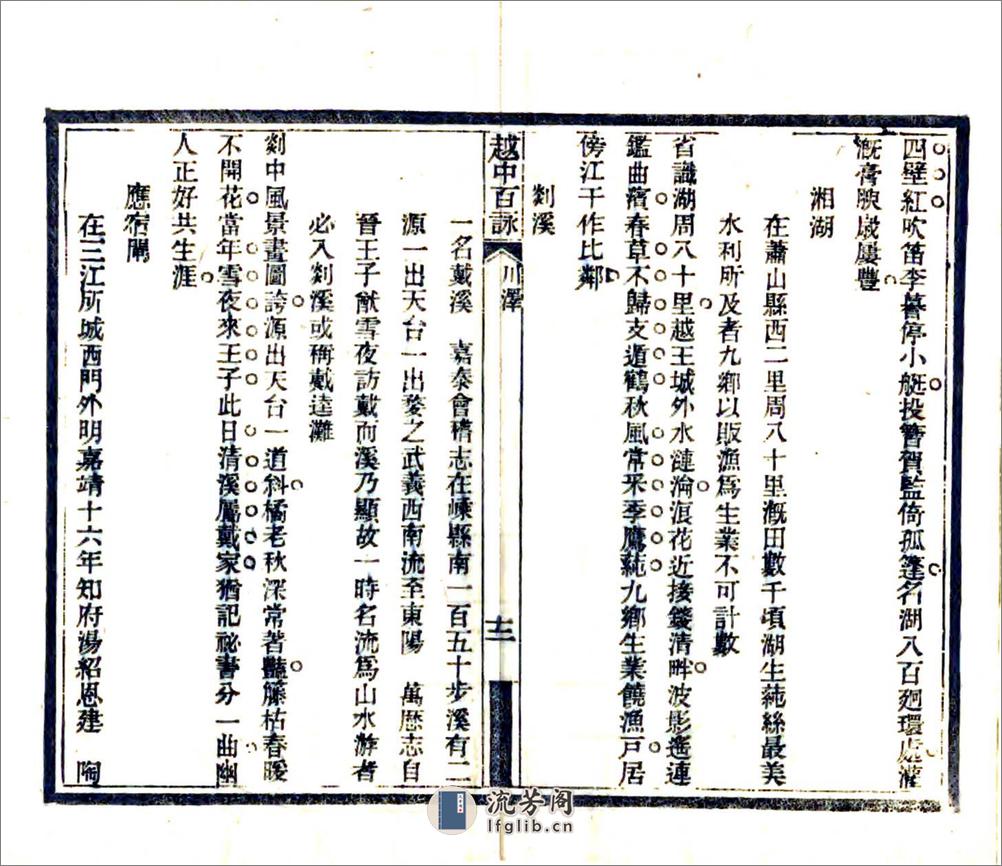 四壁紅吹笛李謩停小艇投簪賀監倚孤篷名湖八百廻環處灌
漑膏腴歲屢豐
湘湖
在蕭山縣西二里周八十里漑田數千頃湖生蒓絲最美
水利所及者九鄉以販漁爲生業不可計數
省識湖周八十里越王城外水漣淪浪花近接錢清畔波影遙連
鑑曲濱春草不歸支遁鶴秋風常采季鷹蒓九鄉生業饒漁戸居
傍江干作比鄰
剡溪
越中百詠
川澤
十二
一名戴溪 嘉泰會稽志在嵊縣南一百五十步溪有二
源一出天台一出婺之武義西南流至東陽 萬歷志自
晉王子猷雪夜訪戴而溪乃顯故一時名流爲山水游者
必入剡溪或稱戴逵灘
剡中風景畫圖誇源出天台一道斜橘老秋深常著豔籐枯春暖
不開花當年雪夜來王子此日清溪屬戴家猶記祕書分一曲幽
人正好共生涯
應宿閘
在三江所城西門外明嘉靖十六年知府湯紹恩建 陶
流芳阁
lfglib.cn